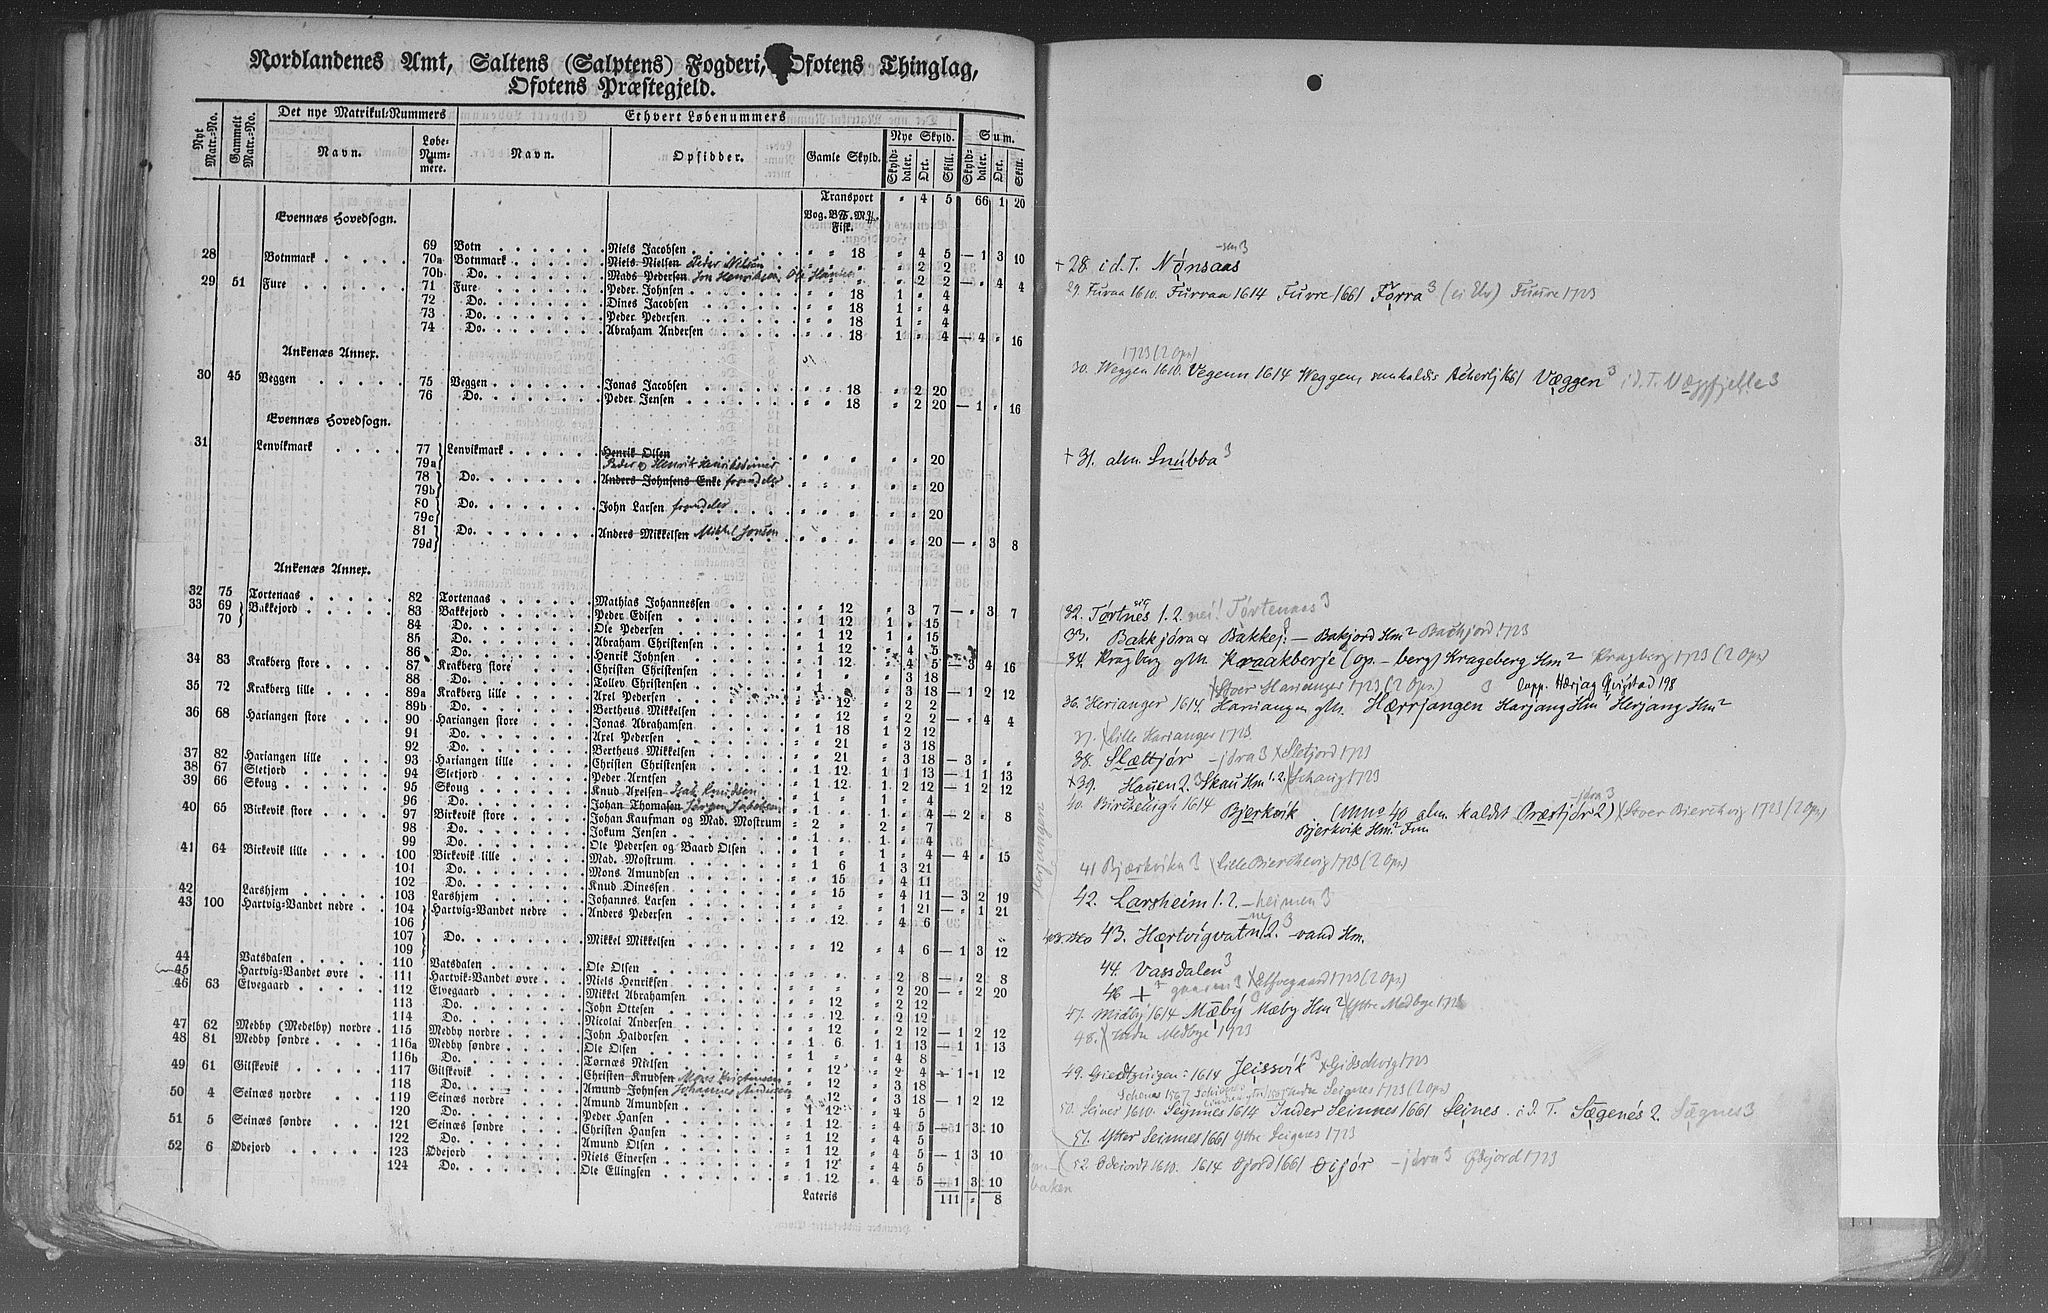 Nordlandenes Amt, Saltens (Salptens) Fogderi, Ofotens Thinglag,
Ofotens Præstegjeld.
Nyt Matr.-No. Gammelt Matr.-No. Det nye Matrikul-Nummers Ethvert Løbenummers
Navn. Løbe-Nummere. Navn. Opsidder. Gamle Skyld. Nye Skyld. Sum.
Skylddaler. Ort. Skill. Skylddaler. Ort. Skill.
Transport " 4 5 66 1 20
Evennæs Hovedsogn. Vog. Fisk.
69 Botn Niels Jacobsen " " 18 " 4 5 — 1 3 10
28 Botnmark 70a Botnmark Niels Nielsen Peder Nilsen " 2 2
70b Do. Mads Pedersen Jon Henriksen Ole Hansen " 2 2 — " 4 4
29 51 Fure 71 Fure Peder Johnsen " " 18 1 " 4
72 Do. Dines Jacobsen " " 18 1 " 4
73 Do. Peder Pedersen " " 18 1 " 4
74 Do. Abraham Andersen " " 18 1 " 4 — 4 " 16
Ankenæs Annex.
30 45 Veggen 75 Veggen Jonas Jacobsen " " 18 " 2 20
76 Do. Peder Jensen " " 18 " 2 20 — 1 " 16
Evennæs Hovedsogn.
31 Lenvikmark 77 Lenvikmark Henrik Olsen
79a Peder og Henrik Henriksønner " " 20
78 Do. Anders Johnsens Enke fradeler
79b " " 20
80 Do. John Larsen fradeler
79c " " 20
81 Do. Anders Mikkelsen Mikkel Jonsen
79d " " 20 — " 3 8
Ankenæs Annex.
32 75 Tortenaas 82 Tortenaas Mathias Johannessen " " 12 " 3 7 — " 3 7
33 69 Bakkejord 83 Bakkejord Peder Edisen " 1 12 1 " 15
70 84 Do. Ole Pedersen " 1 12 1 " 15
85 Do. Abraham Christensen " 1 12
86 Do. Henrik Johnsen " 1 12 " 4 5 — 3 4 16
34 83 Krakberg store 87 Krakberg store Christen Christensen " 1 " " 3 18
88 Do. Tollev Christensen " 1 " " 3 18 — 1 2 12
35 72 Krakberg lille 89a Krakberg lille Axel Pedersen " 2 2
89b Do. Bertheus Mikkelsen " " 12 " 2 2 — " 4 4
36 68 Hariangen store 90 Hariangen store Jonas Abrahamsen " 1 18 1 2 12
91 Do. Axel Pedersen " " 21 " 3 18
92 Do. Bertheus Mikkelsen " " 21 " 3 18 — 3 " "
37 82 Hariangen lille 93 Hariangen lille Christen Christensen " 1 12 1 1 13 — 1 1 13
38 67 Sletjord 94 Sletjord Peder Arntsen " 1 12 1 2 12 — 1 2 12
39 66 Skoug 95 Skoug Knud Axelsen Isak Knudsen " 1 " 1 " 4
96 Do. Johan Thomasen " 1 " 1 " 4 — 2 " 8
40 65 Birkevik store 97 Birkevik store Johan Kaufman og Mad. Mostrum " 2 " 2 " 7
98 Do. Jokum Jensen " 1 " 1 " 4
99 Do. Ole Pedersen og Baard Olsen " 1 " 1 " 4 — 4 " 15
41 64 Birkevik lille 100 Birkevik lille Mad. Mostrum " 1 6 1 3 21
101 Do. Mons Amundsen " " 15 " 4 11
102 Do. Knud Dinessen " " 15 " 4 11 — 3 2 19
42 Larshjem 103 Larshjem Johannes Larsen " 1 21 — " 1 21
43 100 Hartvig-Vandet nedre 104 Hartvig-Vandet nedre Anders Pedersen " " 12 " 4 6
106
107 Do. Mikkel Mikkelsen " " 12 " 4 6 — 1 3 12
109
44 Vatsdalen 110 Vatsdalen Ole Olsen " 2 8 — " 2 8
45 Hartvig-Vandet øvre 111 Hartvik-Vandet øvre Niels Henriksen " 2 20 — " 2 20
46 63 Elvegaard 112 Elvegaard Mikkel Abrahamsen " " 12 " 2 12
113 Do. John Ottesen " " 12 " 2 12
114 Do. Nicolai Andersen " " 12 " 2 12 — 1 2 12
47 62 Medby (Medelby) nordre 115 Medby nordre John Haldorsen " 1 6 1 1 13 — 1 1 13
48 81 Medby søndre 116a Medby søndre Ole Olsen " 1 " " 4 8
116b Do. Tørnæs Nilsen " " 12 " 2 4 — 1 1 12
49 61 Gilskevik 117 Gilskevik Christen Knudsen Mons Kristensen " " 12 " 3 18
118 Do. Amund Johnsen Johannes Andersen " " 12 " 3 18 — 1 2 12
50 4 Seinæs nordre 119 Seinæs nordre Amund Amundsen " 1 12 " 4 5
120 Do. Peder Hansen " 1 12 " 4 5 — 1 3 10
51 5 Seinæs søndre 121 Seinæs søndre Christen Hansen " 1 12 " 4 5
122 Do. Amund Olsen " 1 12 " 4 5 — 1 3 10
52 6 Odejord 123 Odejord Niels Einersen " 1 12 " 4 5
124 Do. Ole Ellingsen " 1 12 " 4 5 — 1 3 10
Lateris 111 " 8
+ 28 i d. T. Nónsaas 3
29. Furaa 1610. Furraa 1614 Furre 1661 Forra 3 (ei Elv) Fuure 1723
1723 (2 Opn)
30. Weggen 1610. Vegenn 1614 Weggen 1661 Væggen 3 i d. T. Væggfjelle 3
+ 31. alm. Snúbba 3
32. Tortnes 1. 2. nei! Tortenaas 3
33. Bakkjora & Bakkej. — Bakjord Hm 2 Bachjord 1723
34. Kragberg glm. Kraakberje (op. – berg) Krageberg Hm 2 Kragberg 1723 (2 Opn)
Stoer Harianger 1723 (2 Opn) 3 Lapp. Hærjag Qvigstad 198
36. Herianger 1614. Hariangen glm. Hærrjangen Harjang Hm Herjang Hm 2
37. Lille Harianger 1723
38. Slættjór – jora 3 Sletjord 1723
+ 39. Hauen 2. 3 Skau Hm 1. 2. Schaug 1723
40. Bircheviig 1614 Bjerkvik (MNo 40 alm. kaldet Præstjór 2) – jora 3 Stoer Bierchvig 1723 (2 Opn)
Bjerkvik Hm 2
41 Bjærkvika 3 Lille Bierchvig 1723 (2 Opn)
Herjangen
42. Larsheim 1. 2. – heimen 3
43. Hærtvigvatn 2. 3 – vand Hm.
44. Vassdalen 3
46 + gaaren 3 Elfvegaard 1723 (2 Opn)
47. Midby 1614 Mæbý 3 Mæby Hm 2 Yttre Medbye 1723
48. Indre Medbye 1723
49. 1614 Jeissvik 3 Gidschevig 1723
50. Seines 1610. Seignes 1614 Inder Seinnes 1661 Seines. i d. T. Sægenés 2. Sægnes 3
51. Ytter Seinnes 1661 Yttre Seignes 1723
52. Odeiordt 1610. 1614 Ojord 1661 Oijór – jora 3 Odejord 1723